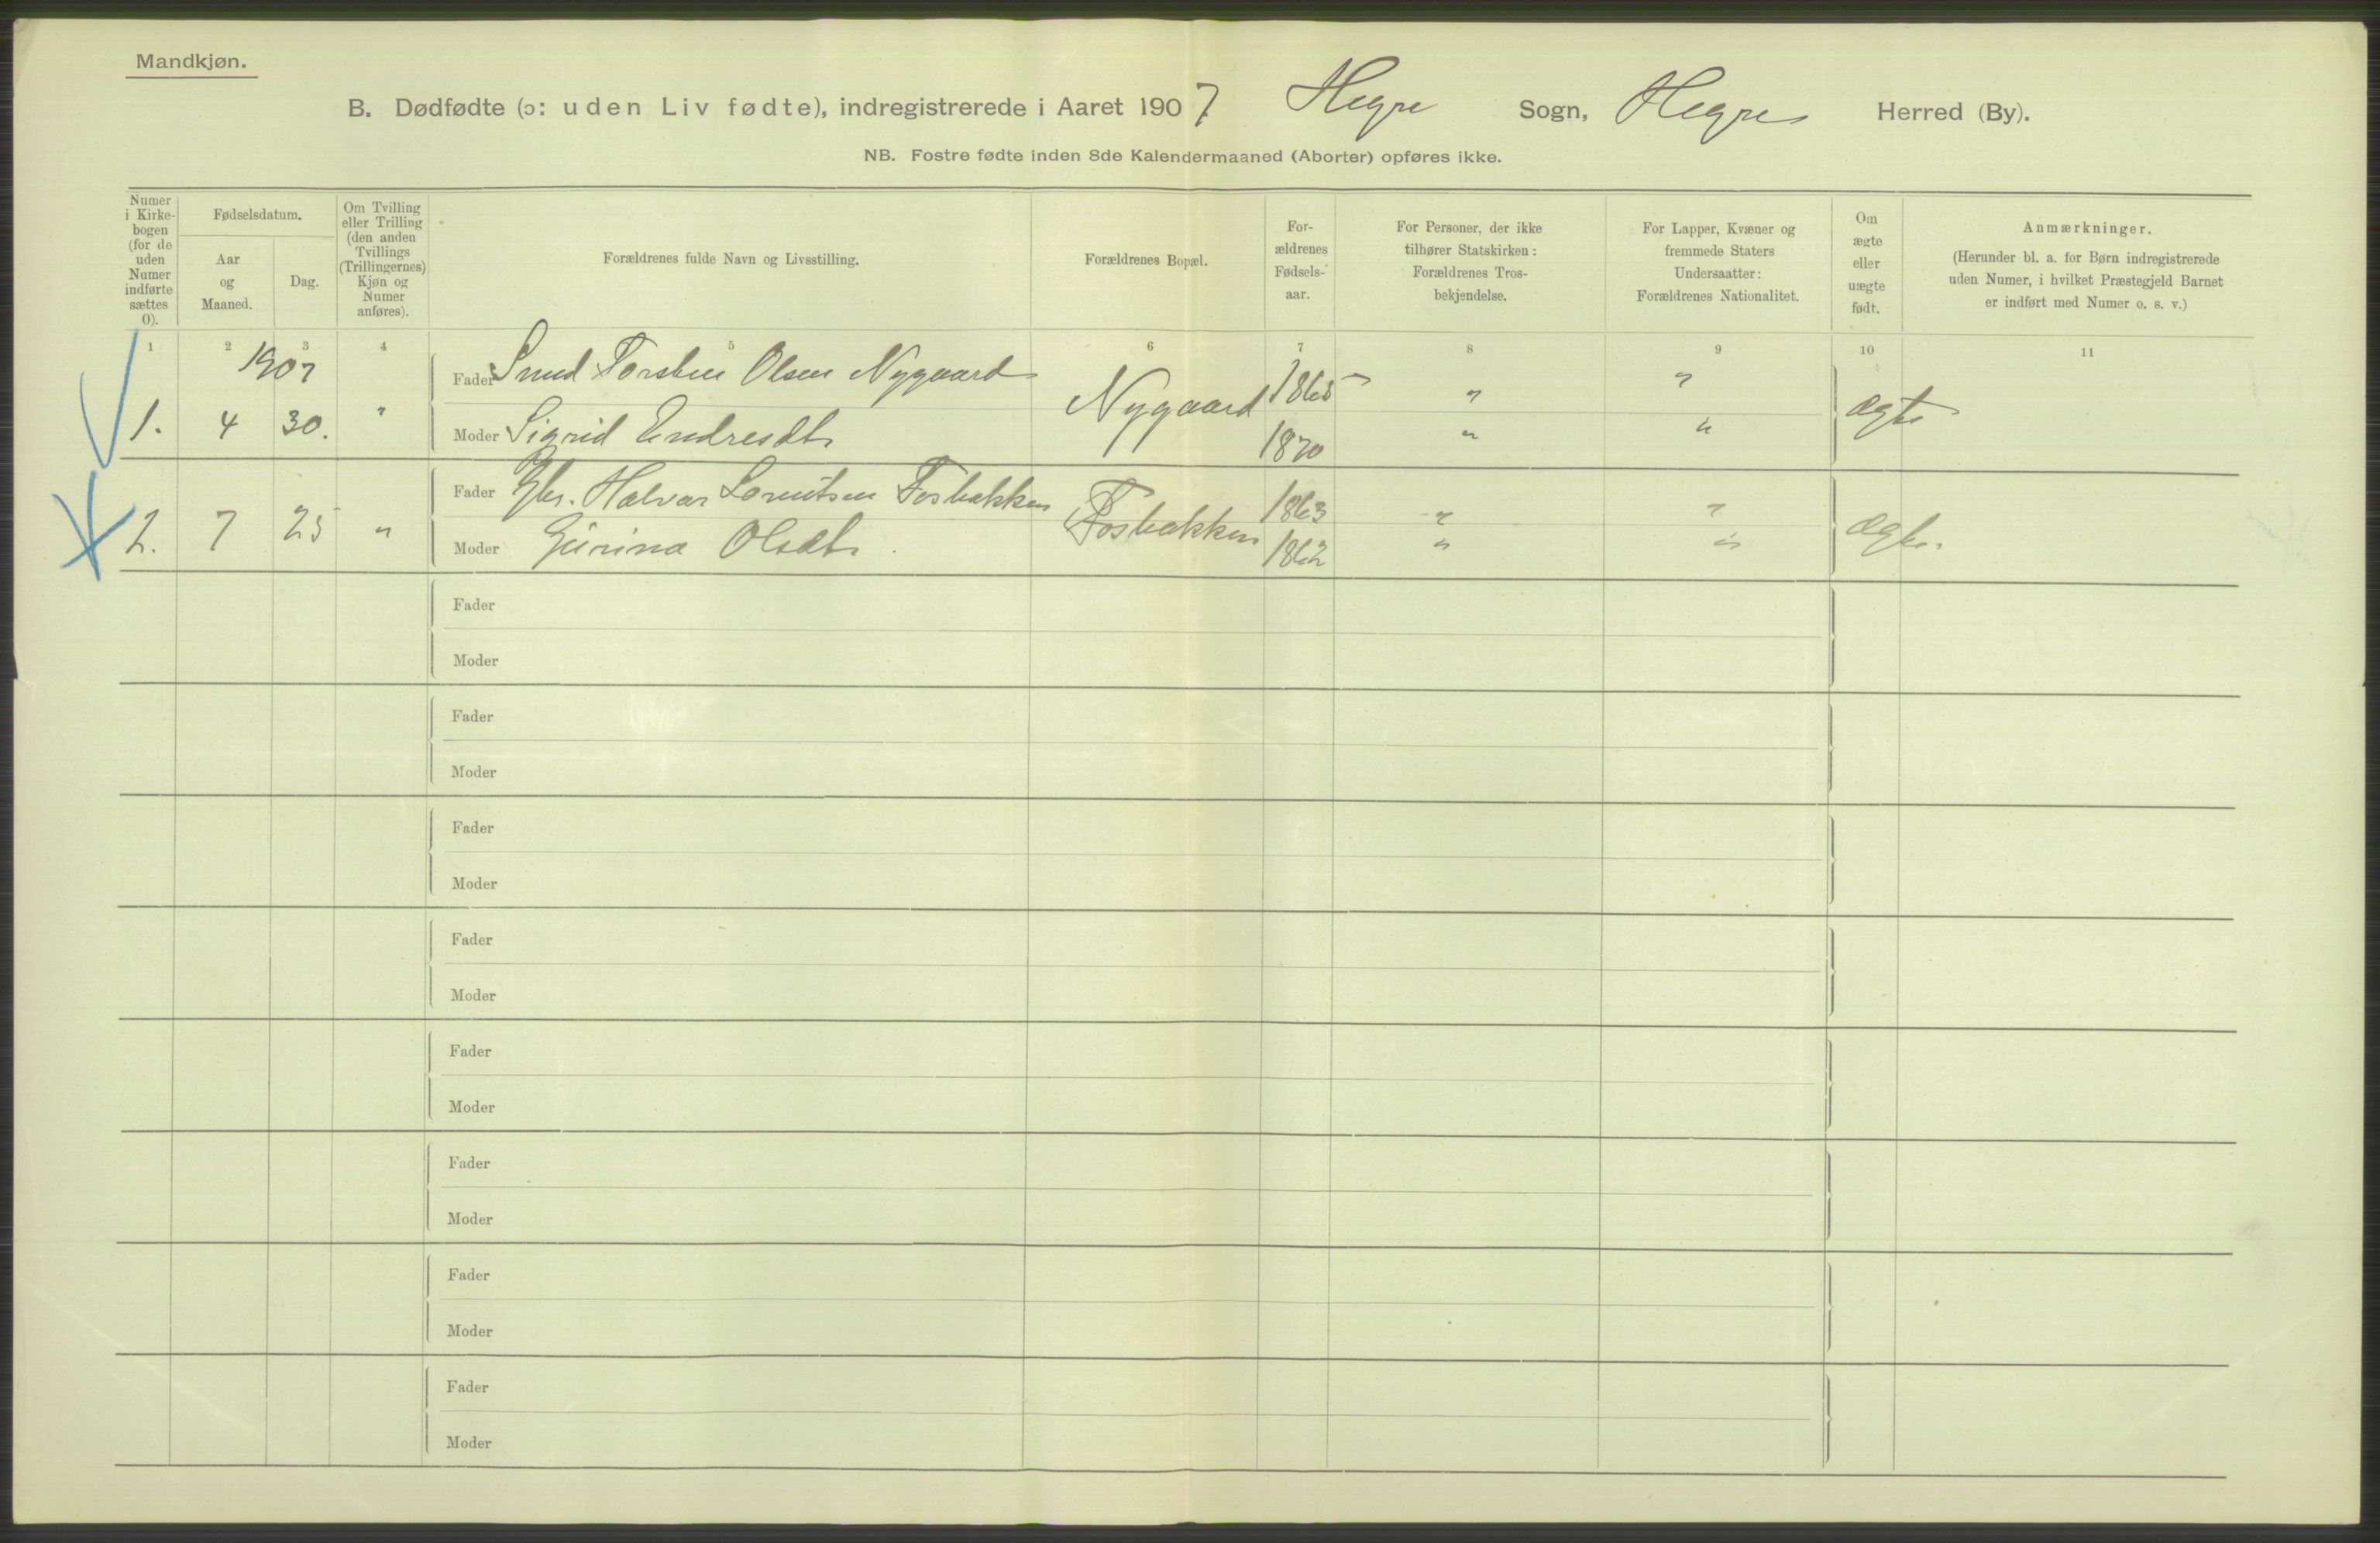 Mandkjøn.
B. Dødfødte (ɔ: uden Liv fødte), indregistrerede i Aaret 1907. Hegre Sogn, Hegre Herred (By).
NB. Fostre fødte inden 8de Kalendermaaned (Aborter) opføres ikke.
Numer i Kirke-bogen (for de uden Numer indførte sættes 0).
Fødselsdatum.
Aar og Maaned.
Dag.
Om Tvilling eller Trilling (den anden Tvillings (Trillingernes) Kjøn og Numer anføres).
Forældrenes fulde Navn og Livsstilling.
Forældrenes Bopæl.
For-ældrenes Fødsels-aar.
For Personer, der ikke tilhører Statskirken: Forældrenes Tros-bekjendelse.
For Lapper, Kvæner og fremmede Staters Undersaatter: Forældrenes Nationalitet.
Om ægte eller uægte født.
Anmærkninger.
(Herunder bl. a. for Børn indregistrerede uden Numer, i hvilket Præstegjeld Barnet er indført med Numer o. s. v.)
1 2 3 4 5 6 7 8 9 10 11
1907
Fader Smed Torsten Olsen Nygaard 1865 " "
1. 4 30. " Moder Sigrid Endresdtr Nygaard 1870 " " ægte
Fader Gbr. Halvar Lorentsen Fosbakken 1863 " "
2. 7 25 " Moder Gurina Olsdtr. Fosbakken 1862 " " ægte.
Fader
Moder
Fader
Moder
Fader
Moder
Fader
Moder
Fader
Moder
Fader
Moder
Fader
Moder
Fader
Moder